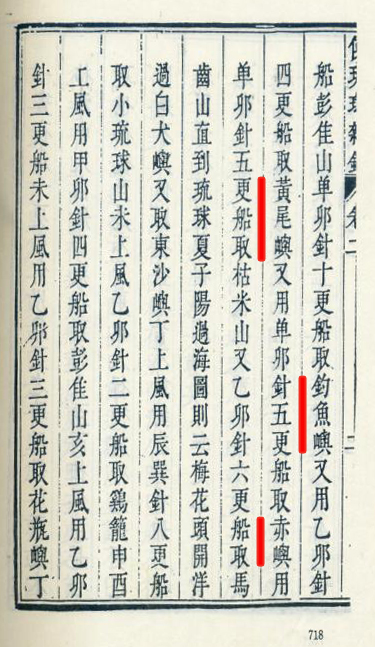 使琉球雜錄 卷二 二
船彭佳山单卯針十更船取釣魚嶼又用乙卯針
四更船取黃尾嶼又用单卯針五更船取赤嶼用
单卯針五更船取枯米山又乙卯針六更船取馬
齒山直到琉球夏子陽過海圖則云梅花頭開洋
過白犬嶼又取東沙嶼丁上風用辰巽針八更船
取小琉球山未上風乙卯針二更船取鷄籠申酉
上風用甲卯針四更船取彭佳山亥上風用乙卯
針三更船未上風用乙卯針三更船取花瓶嶼丁
718